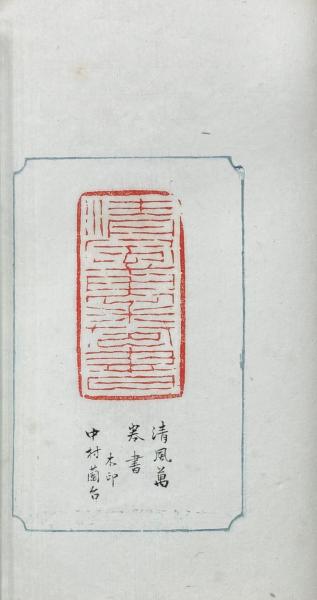 清風萬
卷書
木印
中村蘭台